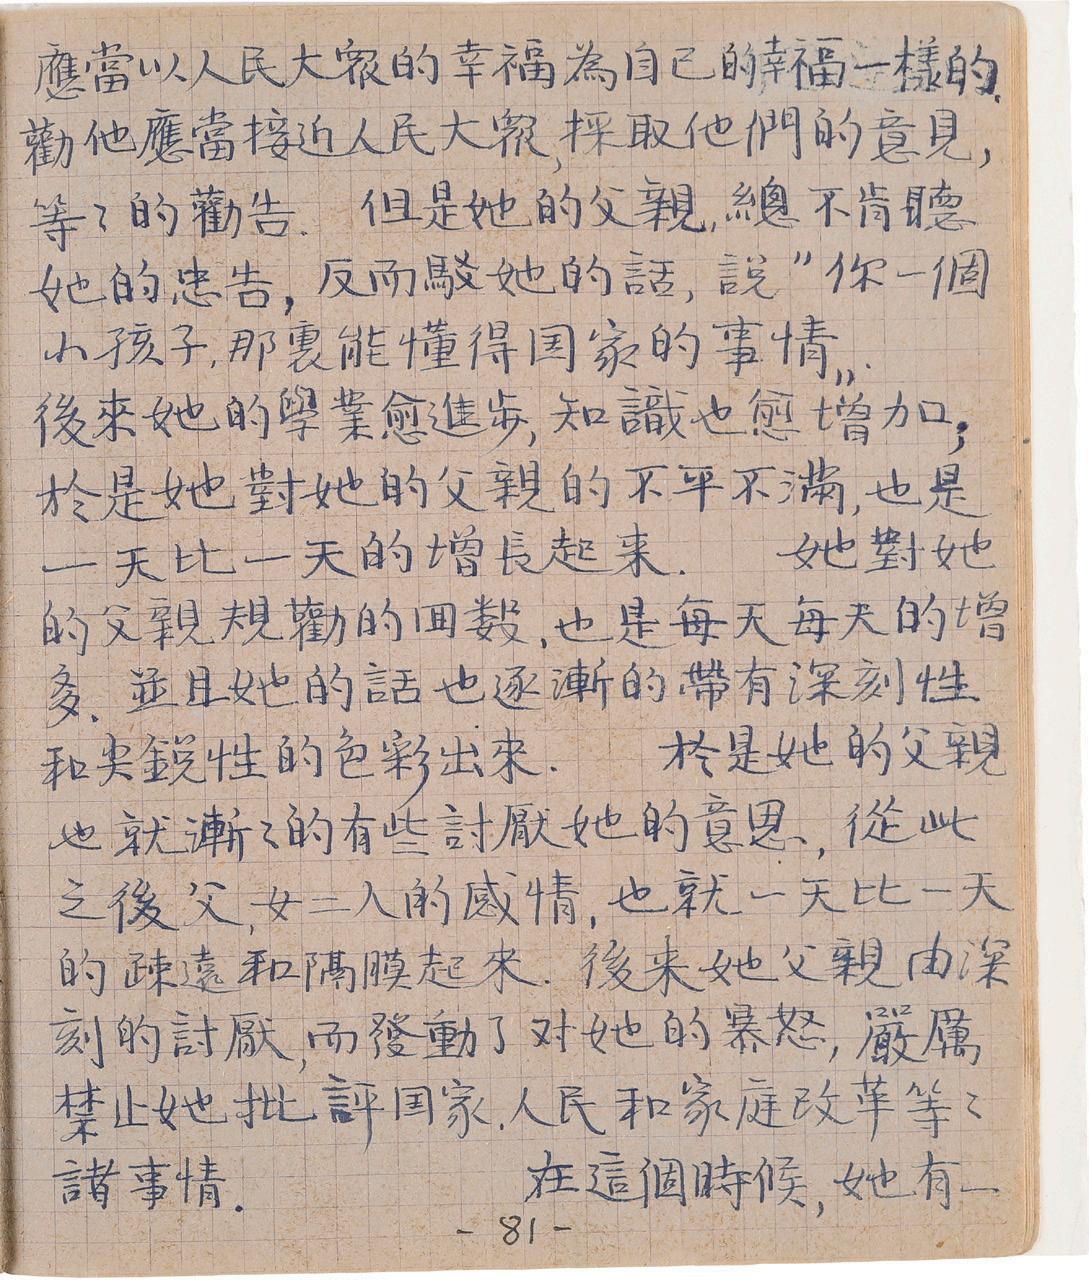 應當以人民大眾的幸福為自己的幸福一樣的.
勸他應當接近人民大眾,採取他們的意見,
等〻的勸告. 但是她的父親,總不肯聽
她的忠告,反而駁她的話,說"你一個
小孩子,那裏能懂得国家的事情„.
後來她的學業愈進步,知識也愈增加,
於是她對她的父親的不平不滿,也是
一天比一天的增長起来. 她對她
的父親規勸的回数,也是每天每天的增
多.並且她的話也逐漸的帶有深刻性
和尖銳性的色彩出來. 於是她的父親
也就漸〻的有些討厭她的意思,從此
之後父,女二人的感情,也就一天比一天
的疎遠和隔膜起來.後来她父親由深
刻的討厭,而發動了对她的暴怒,嚴厲
禁止她批評国家.人民和家庭改革等〻
諸事情. 在這個時候,她有一
-81-